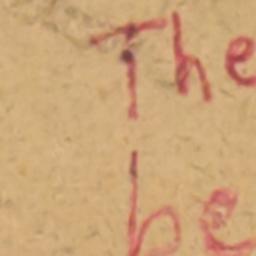 The
be